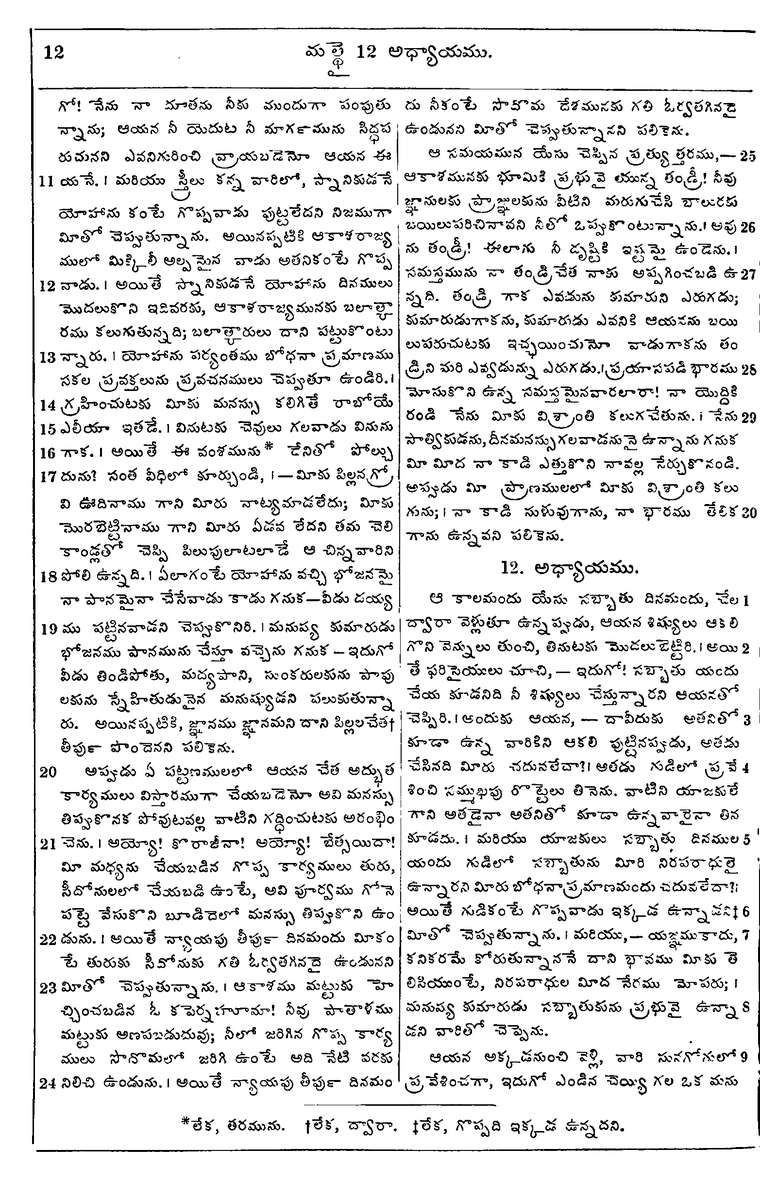 12 మత్థై 12 అధ్యాయము.
గో! నేను నా దూతను నీకు ముందుగా పంపుతు
న్నాను; ఆయన నీ యెదుట నీ మార్గమును సిద్ధప
రుచునని ఎవనిగురించి వ్రాయబడెనో ఆయన ఈ
11 యనే. । మరియు స్త్రీలు కన్న వారిలో, స్నానికుడనే
యోహాను కంటే గొప్పవాడు పుట్టలేదని నిజముగా
మీతో చెప్పుతున్నాను. అయినప్పటికి ఆకాశరాజ్య
ములో మిక్కిలీ అల్పమైన వాడు అతనికంటే గొప్ప
12 వాడు. । అయితే స్నానికుడనే యోహాను దినములు
మొదలుకొని ఇదివరకు, ఆకాశరాజ్యమునకు బలాత్కా
రము కలుగుతున్నది; బలాత్కారులు దాని పట్టుకొంటు
13 న్నారు. । యోహాను పర్యంతము బోధనా ప్రమాణము
సకల ప్రవక్తలును ప్రవచనములు చెప్పుతూ ఉండిరి. ।
14 గ్రహించుటకు మీకు మనస్సు కలిగితే రాబోయే
15 ఎలీయా ఇతడే. । వినుటకు చెవులు గలవాడు వినును
16 గాక. । అయితే ఈ వంశమును* దేనితో పోల్చు
17 దును? సంత వీధిలో కూర్చుండి, । — మీకు పిల్లనగ్రో
వి ఊదినాము గాని మీరు నాట్యమాడలేదు; మీకు
మొరబెట్టినాము గాని మీరు ఏడవ లేదని తమ చెలి
కాండ్లతో చెప్పి పిలుపులాటలాడే ఆ చిన్నవారిని
18 పోలి ఉన్నది. । ఏలాగంటే యోహాను వచ్చి భోజనమై
నా పానమైనా చేసేవాడు కాడు గనుక—వీడు దయ్య
19 ము పట్టినవాడని చెప్పుకొనిరి. । మనుష్య కుమారుడు
భోజనము పానమును చేస్తూ వచ్చెను గనుక — ఇదుగో
వీడు తిండిపోతు, మద్యపాని, సుంకరులకును పాపు
లకును స్నేహితుడునైన మనుష్యుడని పలుకుతున్నా
రు. అయినప్పటికి, జ్ఞానము జ్ఞానమని దాని పిల్లలచేత†
తీర్పు పొందెనని పలికెను.
20 అప్పుడు ఏ పట్టణములలో ఆయన చేత అద్భుత
కార్యములు విస్తారముగా చేయబడెనో అవి మనస్సు
తిప్పుకొనక పోవుటవల్ల వాటిని గద్దించుటకు ఆరంభిం
21 చెను. । అయ్యో! కొరాజీనా! అయ్యో! బేత్సయిదా!
మీ మధ్యను చేయబడిన గొప్ప కార్యములు తురు,
సీదోనులలో చేయబడి ఉంటే, అవి పూర్వము గోనె
పట్టె వేసుకొని బూడిదెలో మనస్సు తిప్పుకొని ఉం
22 డును. । అయితే న్యాయపు తీర్పు దినమందు మీకం
టే తురుకు సీదోనుకు గతి ఓర్వతగినదై ఉండునని
23 మీతో చెప్పుతున్నాను. । ఆకాశము మట్టుకు హె
చ్చించబడిన ఓ కపెర్నహూమా! నీవు పాతాళము
మట్టుకు అణపబడుదువు; నీలో జరిగిన గొప్ప కార్య
ములు సొదొమలో జరిగి ఉంటే అది నేటి వరకు
24 నిలిచి ఉండును. । అయితే న్యాయపు తీర్పు దినమం
దు నీకంటే సొదొమ దేశమునకు గతి ఓర్వతగినదై
ఉండునని మీతో చెప్పుతున్నానని పలికెను.
ఆ సమయమున యేసు చెప్పిన ప్రత్యుత్తరము,— 25
ఆకాశమునకు భూమికి ప్రభువై యున్న తండ్రీ! నీవు
జ్ఞానులకును ప్రాజ్ఞులకును వీటిని మరుగుచేసి బాలురకు
బయిలుపరిచినావని నీతో ఒప్పుకొంటున్నాను. । అవు 26
ను తండ్రీ! ఈలాగు నీ దృష్టికి ఇష్టమై ఉండెను. ।
సమస్తమును నా తండ్రిచేత నాకు అప్పగించబడి ఉ 27
న్నది. తండ్రి గాక ఎవడును కుమారుని ఎరుగడు;
కుమారుడుగాకను, కుమారుడు ఎవనికి ఆయనను బయి
లుపరుచుటకు ఇచ్ఛయించునో వాడుగాకను తం
డ్రిని మరి ఎవ్వడున్ను ఎరుగడు. । ప్రయాసపడి భారము 28
మోసుకొని ఉన్న సమస్తమైనవారలారా! నా యొద్దికి
రండి నేను మీకు విశ్రాంతి కలుగచేతును. । నేను 29
సాత్వికుడను, దీనమనస్సుగలవాడనునై ఉన్నాను గనుక
మీ మీద నా కాడి ఎత్తుకొని నావల్ల నేర్చుకొనండి.
అప్పుడు మీ ప్రాణములలో మీకు విశ్రాంతి కలు
గును; । నా కాడి సుళువుగాను, నా భారము తేలిక 30
గాను ఉన్నవని పలికెను.
12. అధ్యాయము.
ఆ కాలమందు యేసు సబ్బాతు దినమందు, చేల 1
ద్వారా వెళ్లుతూ ఉన్నప్పుడు, ఆయన శిష్యులు ఆకలి
గొని వెన్నులు తుంచి, తినుటకు మొదలుబెట్టిరి. । అయి 2
తే ఫరిసైయులు చూచి, — ఇదుగో! సబ్బాతు యందు
చేయ కూడనిది నీ శిష్యులు చేస్తున్నారని ఆయనతో
చెప్పిరి. । అందుకు ఆయన, — దావీదుకు అతనితో 3
కూడా ఉన్న వారికిని ఆకలి పుట్టినప్పుడు, అతడు
చేసినది మీరు చదువలేదా? । అతడు గుడిలో ప్రవే 4
శించి సమ్ముఖపు రొట్టెలు తినెను. వాటిని యాజకులే
గాని అతడైనా అతనితో కూడా ఉన్నవారైనా తిన
కూడదు. । మరియు యాజకులు సబ్బాతు దినముల 5
యందు గుడిలో సబ్బాతును మీరి నిరపరాధులై
ఉన్నారని మీరు బోధనాప్రమాణమందు చదువలేదా? ।
అయితే గుడికంటే గొప్పవాడు ఇక్కడ ఉన్నాడని‡ 6
మీతో చెప్పుతున్నాను. । మరియు, — యజ్ఞముకాదు, 7
కనికరమే కోరుతున్నాననే దాని భావము మీకు తె
లిసియుంటే, నిరపరాధుల మీద నేరము మోపరు; ।
మనుష్య కుమారుడు సబ్బాతుకును ప్రభువై ఉన్నా 8
డని వారితో చెప్పెను.
ఆయన అక్కడనుంచి వెళ్లి, వారి సునగోగులో 9
ప్రవేశించగా, ఇదుగో ఎండిన చెయ్యి గల ఒక మను
*లేక, తరమును. †లేక, ద్వారా. ‡లేక, గొప్పది ఇక్కడ ఉన్నదని.